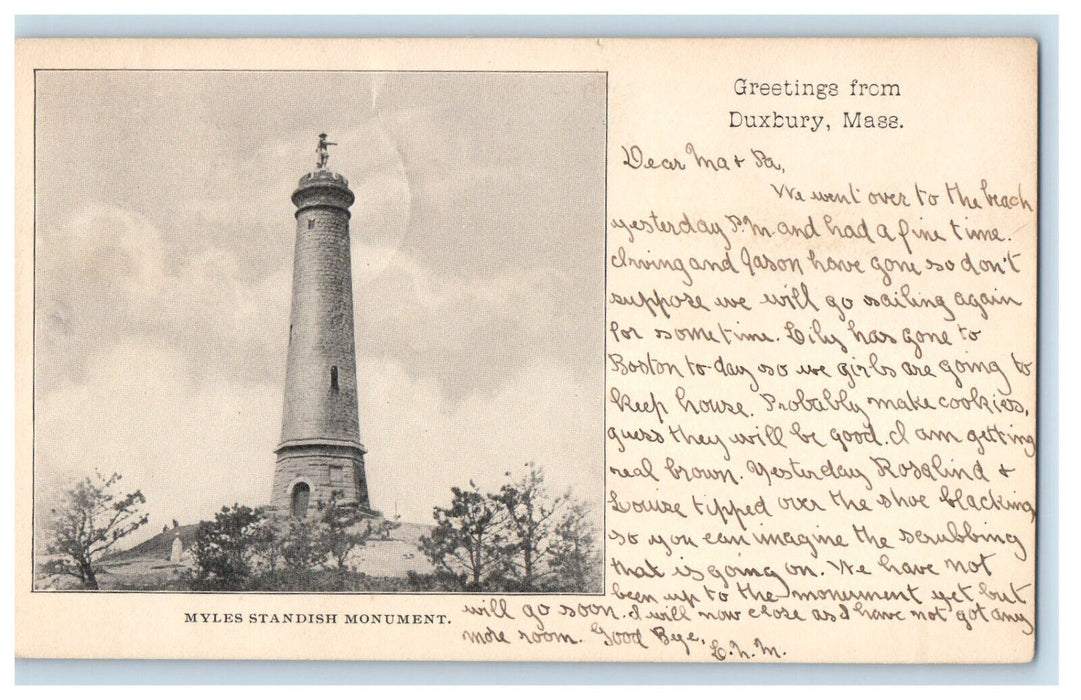 Greetings from
Duxbury, Mass.
Dear Ma & Pa,
We went over to the beach
yesterday P.M. and had a fine time.
Irving and Jason have gone so don't
suppose we will go sailing again
for sometime. Lily has gone to
Boston to-day so we girls are going to
keep house. Probably make cookies,
guess they will be good. I am getting
real brown. Yesterday Rosalind &
Louise tipped over the shoe blacking
so you can imagine the scrubbing
that is going on. We have not
been up to the monument yet but
will go soon. I will now close as I have not got any
more room. Good Bye,
L.N.M.
MYLES STANDISH MONUMENT.